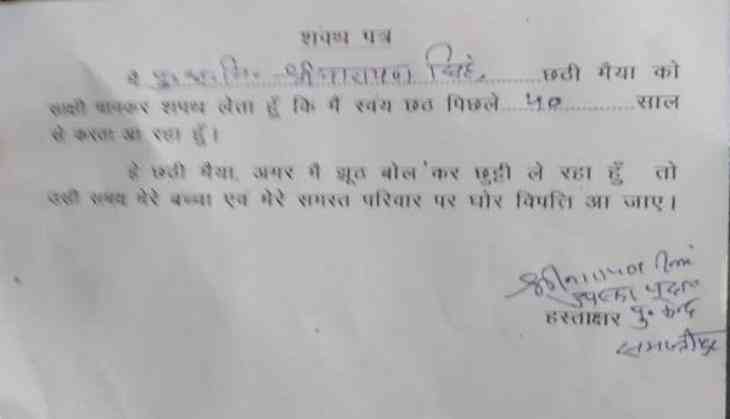 शपथ पत्र
मै पु०अ०नि० श्रीनारायण सिंह छठी मैया को
साक्षी मानकर शपथ लेता हूँ कि मैं स्वयं छठ पिछले ५० साल
से करता आ रहा हूँ।
हे छठी मैया, अगर मै झूठ बोल कर छुट्टी ले रहा हूँ तो
उसी समय मेरे बच्चा एव मेरे समस्त परिवार पर घोर विपति आ जाए।
श्रीनारायण सिंह
हस्ताक्षर पु० केन्द्र